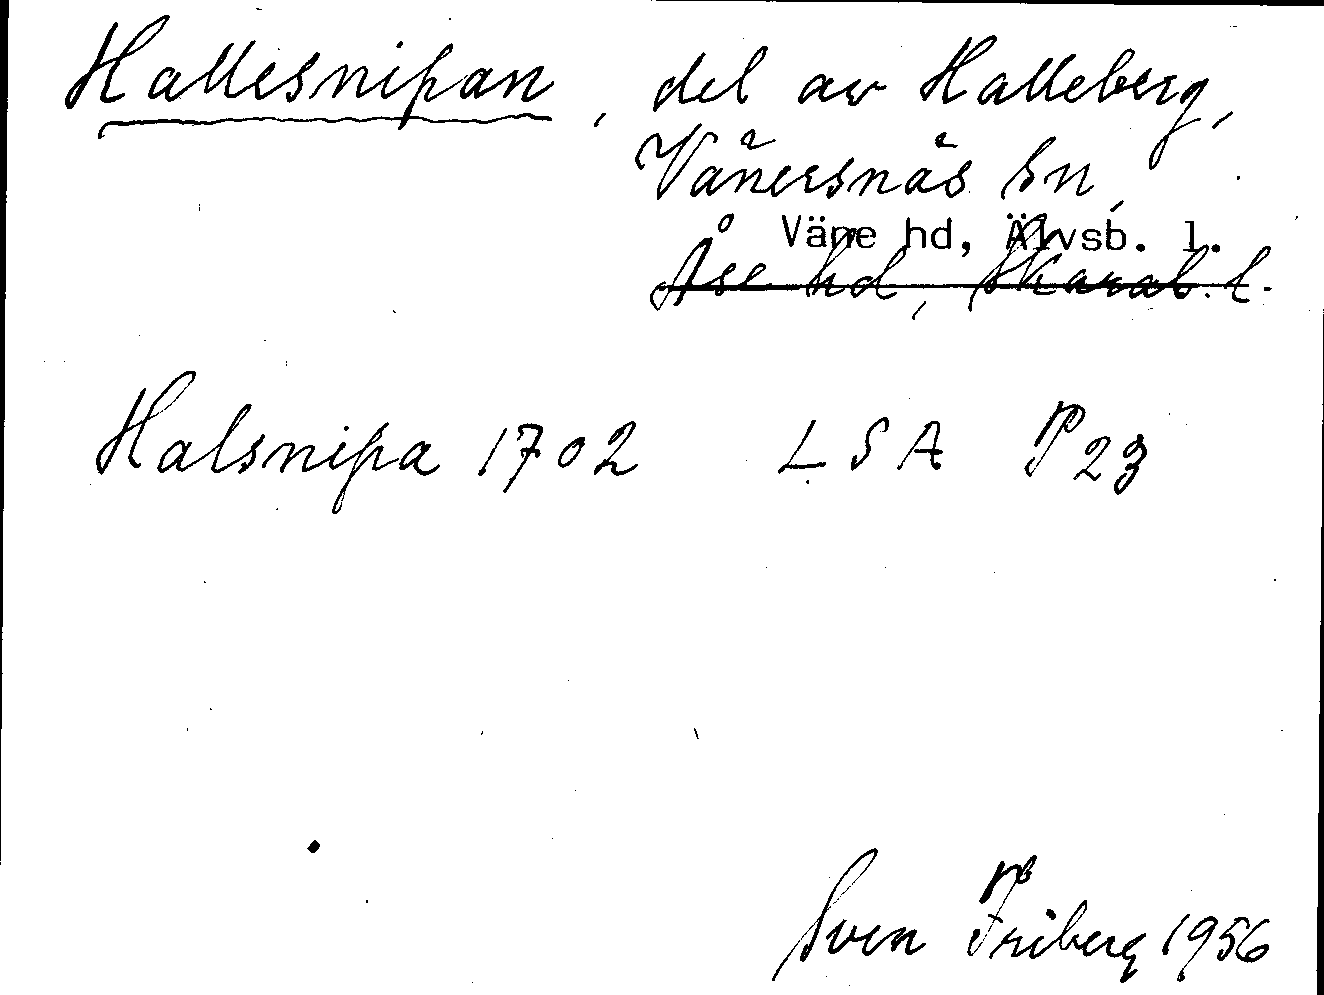 Hallesnipan, del av Halleberg,
Vänersnäs sn,
Väne hd, Älvsb. l.
Åse hd, Skarab. l.
Halsnipa 1702 LSA P23
Sven Friberg 1956